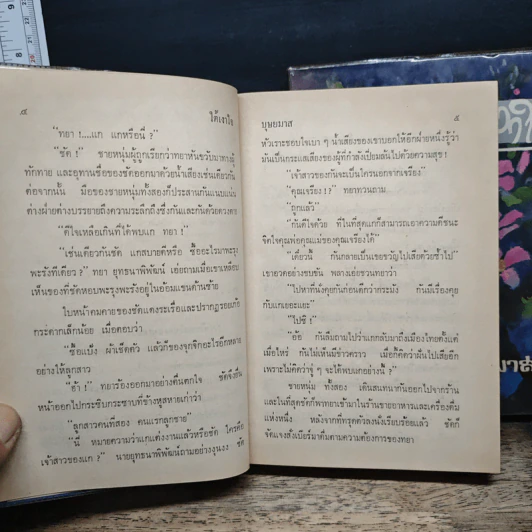 ๔ ใต้เงาใจ
"ทยา !....แก แกหรือนี่ ?"
"ชัด !" ชายหนุ่มผู้ถูกเรียกว่าทยาหันขวับมาตามผู้
ทักทาย และอุทานชื่อของชัดออกมาด้วยน้ำเสียงเช่นเดียวกัน
ต่อจากนั้น มือของชายหนุ่มทั้งสองก็ประสานกันแนบแน่น
ต่างฝ่ายต่างบรรยายถึงความระลึกถึงซึ่งกันและกันด้วยดวงตา
"ดีใจเหลือเกินที่ได้พบแก ทยา !"
"เช่นเดียวกันชัด แกสบายดีหรือ ซื้ออะไรมาพะรุง
พะรังทีเดียว ?" ทยา ยุทธนาพิพัฒน์ เอ่ยถามเมื่อเขาเหลือบ
เห็นของที่ชัดหอบพะรุงพะรังอยู่ในอ้อมแขนด้านซ้าย
ใบหน้าคมคายของชัดแดงระเรื่อและปรากฏรอยเก้อ
กระดากเล็กน้อย เมื่อตอบว่า
"ซื้อแป้ง ผ้าเช็ดตัว แล้วก็ของจุกจิกอะไรอีกหลาย
อย่างให้ลูกสาว
"ฮ้า !" ทยาร้องออกมาอย่างตื่นตกใจ ชัดจึงยื่น
หน้าออกไปกระซิบกระซาบที่ข้างหูสหายเก่าว่า
"ลูกสาวคนที่สอง คนแรกลูกชาย"
"นี่ หมายความว่าแกแต่งงานแล้วหรือชัด ใครคือ
เจ้าสาวของแก ?" นายยุทธนาพิพัฒน์ถามอย่างงุนงง ชัด
บุษยมาส ๕
หัวเราะชอบใจเบา ๆ น้ำเสียงของเขาบอกให้อีกฝ่ายหนึ่งรู้ว่า
มันเป็นกระแสเสียงของผู้ที่กำลังเปี่ยมล้นไปด้วยความสุข !
"เจ้าสาวของกันจะเป็นใครนอกจากเจรียง"
"คุณเจรียง !?" ทยาทวนถาม
"ถูกแล้ว"
"กันดีใจด้วย ที่ในที่สุดแกก็สามารถเอาความดีชนะ
จิตใจคุณพ่อคุณแม่ของคุณเจรียงได้"
"เดี๋ยวนี้ กันกลายเป็นเขยขวัญไปเสียด้วยซ้ำไป"
เขาอวดอย่างขบขัน พลางเอ่ยชวนทยาว่า
"ไปหาที่นั่งคุยกันก่อนดีกว่ากระมัง กันมีเรื่องคุย
กับแกเยอะแยะ"
"ไปซี !"
"อ้อ กันลืมถามไปว่าแกกลับมาถึงเมืองไทยตั้งแต่
เมื่อไหร่ กันไม่เห็นมีข่าวคราว เมื่อกี้คิดว่าฝันไปเสียอีก
เพราะไม่คิดว่าจู่ ๆ จะได้พบแกอย่างนี้ !"
ชายหนุ่ม ทั้งสอง เดินสนทนากันออกไปจากร้าน
และในที่สุดชัดก็พาทยาเข้ามาในร้านขายอาหารและเครื่องดื่ม
แห่งหนึ่ง หลังจากที่ทรุดตัวลงนั่งเรียบร้อยแล้ว ชัดก็
จัดแจงสั่งเบียร์มาดื่มตามความต้องการของทยา